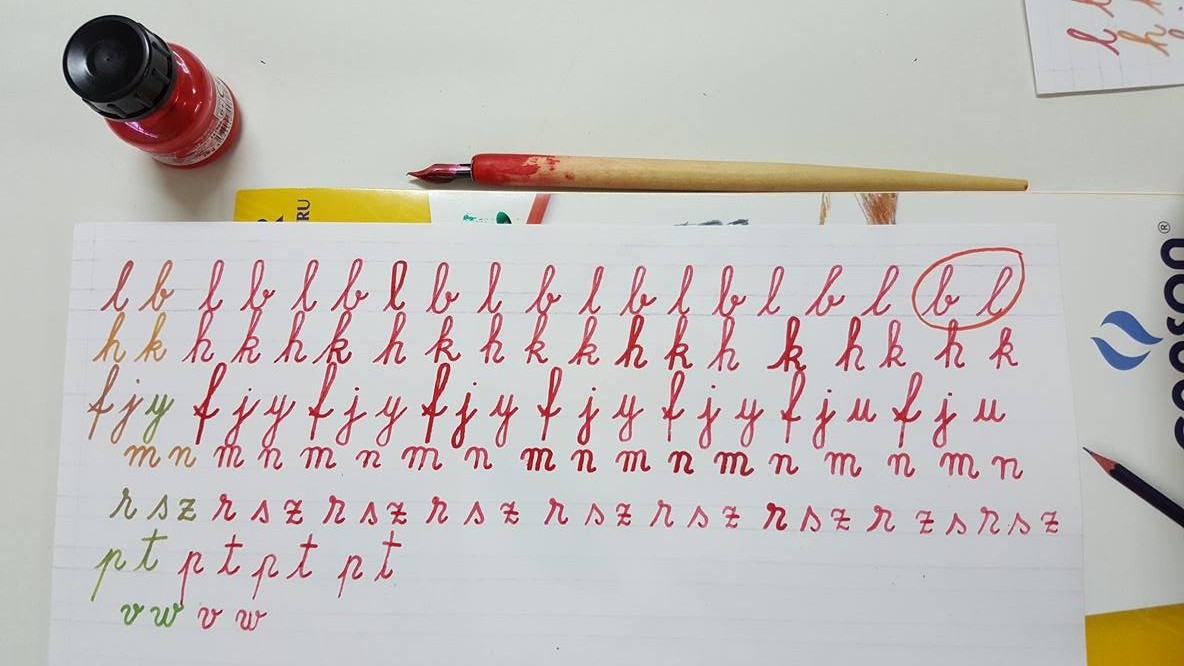 l b l b l b l b l b l b l b l b l b l
h k h k h k h k h k k h k h k h k h k
f j y f j y f j y f j y f j y f j y f j u f j u
m n m n m n m n m n m n m n m n m n
r s z r s z r s z r s z r s z r s z r s z r z s r s z
p t p t p t p t
v w v w
RU
canson®
l
h